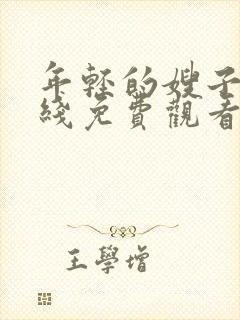 年輕的嫂子
綫免費觀看
王學增